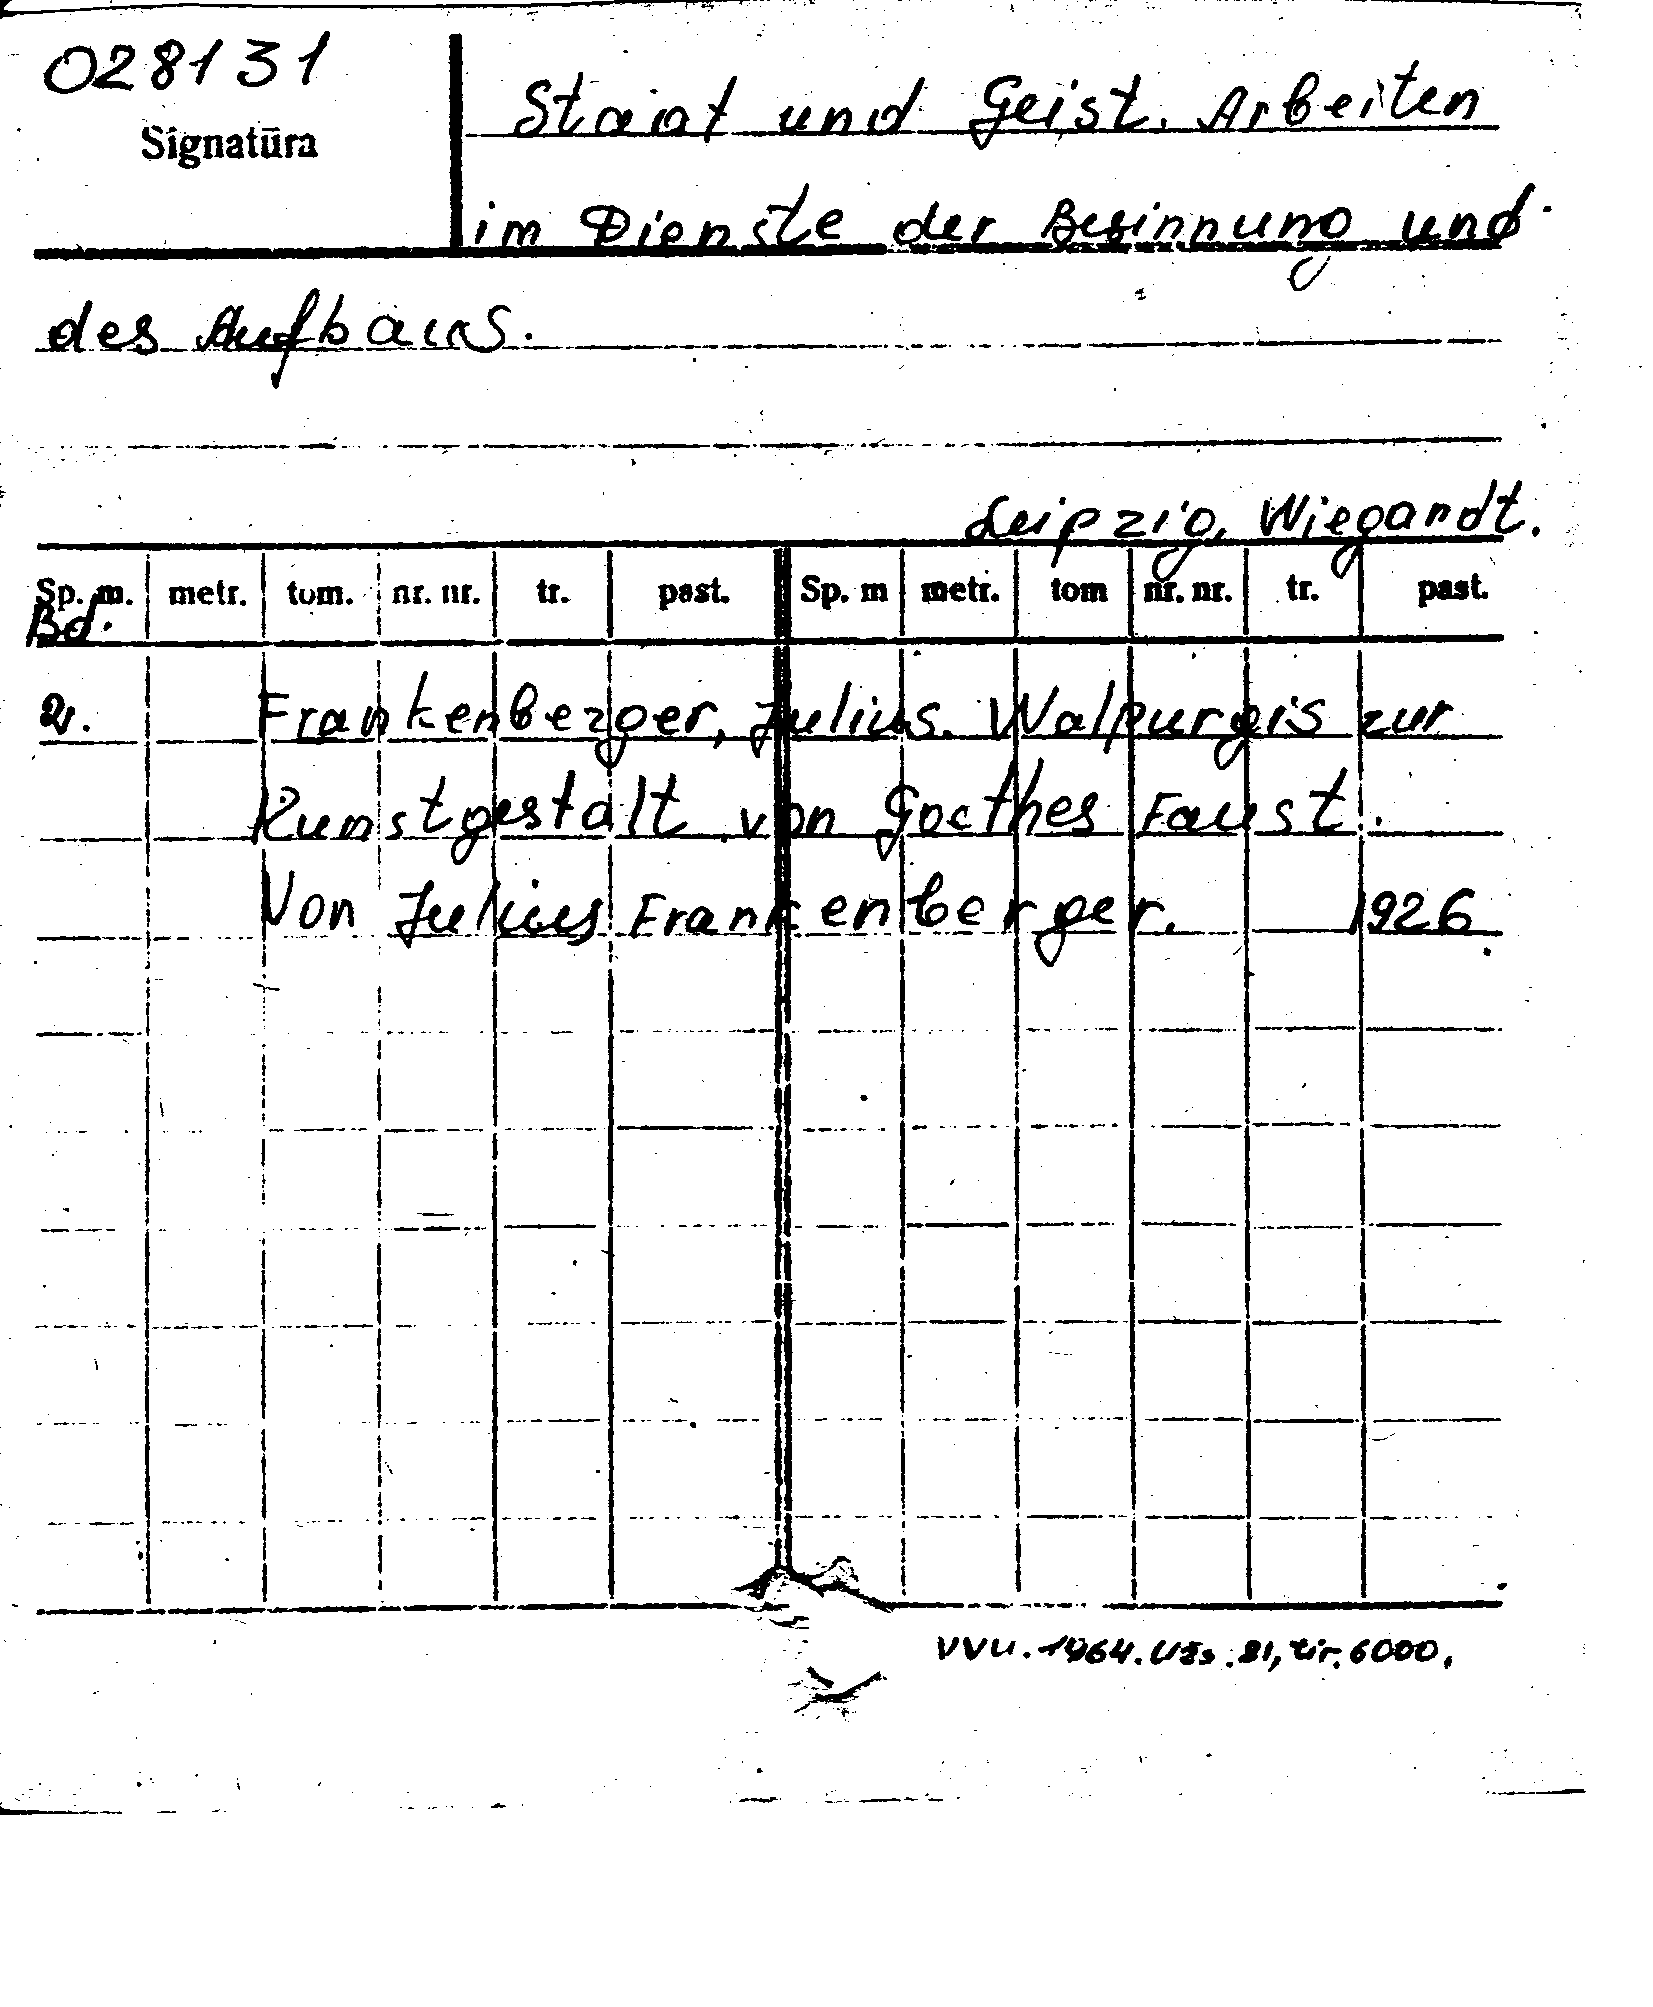 028131
Signatūra
Staat und Geist. Arbeiten
im Dienste der Besinnung und
des Aufbaus.
Leipzig, Wiegandt.
Sp. m. metr. tom. nr. nr. tr. past. Sp. m metr. tom nr. nr. tr. past.
Bd.
2. Frankenberger, Julius. Walpurgis zur
Kunstgestalt von Goethes Faust.
Von Julius Frankenberger. 1926
VVU. 1964. Užs. 81, tir. 6000.